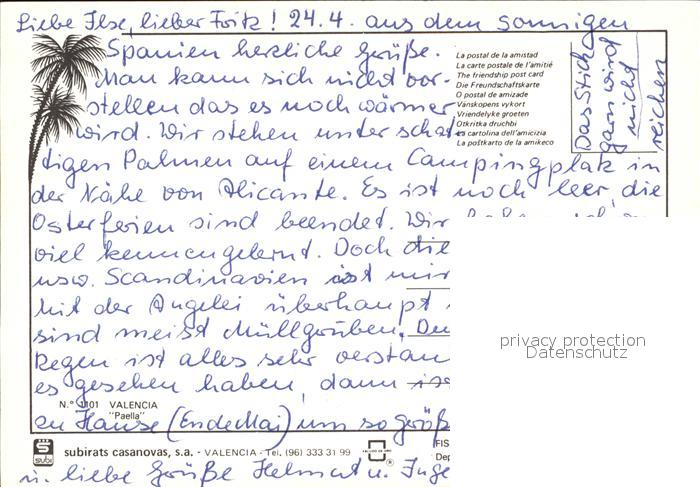 Liebe Ilse, lieber Fritz! 24.4. aus dem sonnigen
Spanien herzliche Grüße.
Man kann sich nicht vor-
stellen das es noch wärmer
wird. Wir stehen unter schat-
tigen Palmen auf einem Campingplatz in
der Nähe von Alicante. Es ist noch leer, die
Osterferien sind beendet. Wir
viel kennengelernt. Doch die
usw. Scandinavien ist mir
Mit der Angelei überhaupt
sind meist Müllgruben. Der
Regen ist alles sehr
es gesehen haben, dann
zu Hause (Ende Mai) um so
u. liebe Grüße Helmut u. Inge
La postal de la amistad
La carte postale de l'amitié
The friendship post card
Die Freundschaftskarte
O postal de amizade
Vänskopens vykort
Vriendelyke groeten
Otkritka druchbi
La cartolina dell'amicizia
La poŝtkarto de la amikeco
Das Stück
ganz wird
nicht
reichen
privacy protection
Datenschutz
N.° 1101 VALENCIA
"Paella"
subi
subirats casanovas, s.a. - VALENCIA - Tel. (96) 333 31 99
FIS
Dep